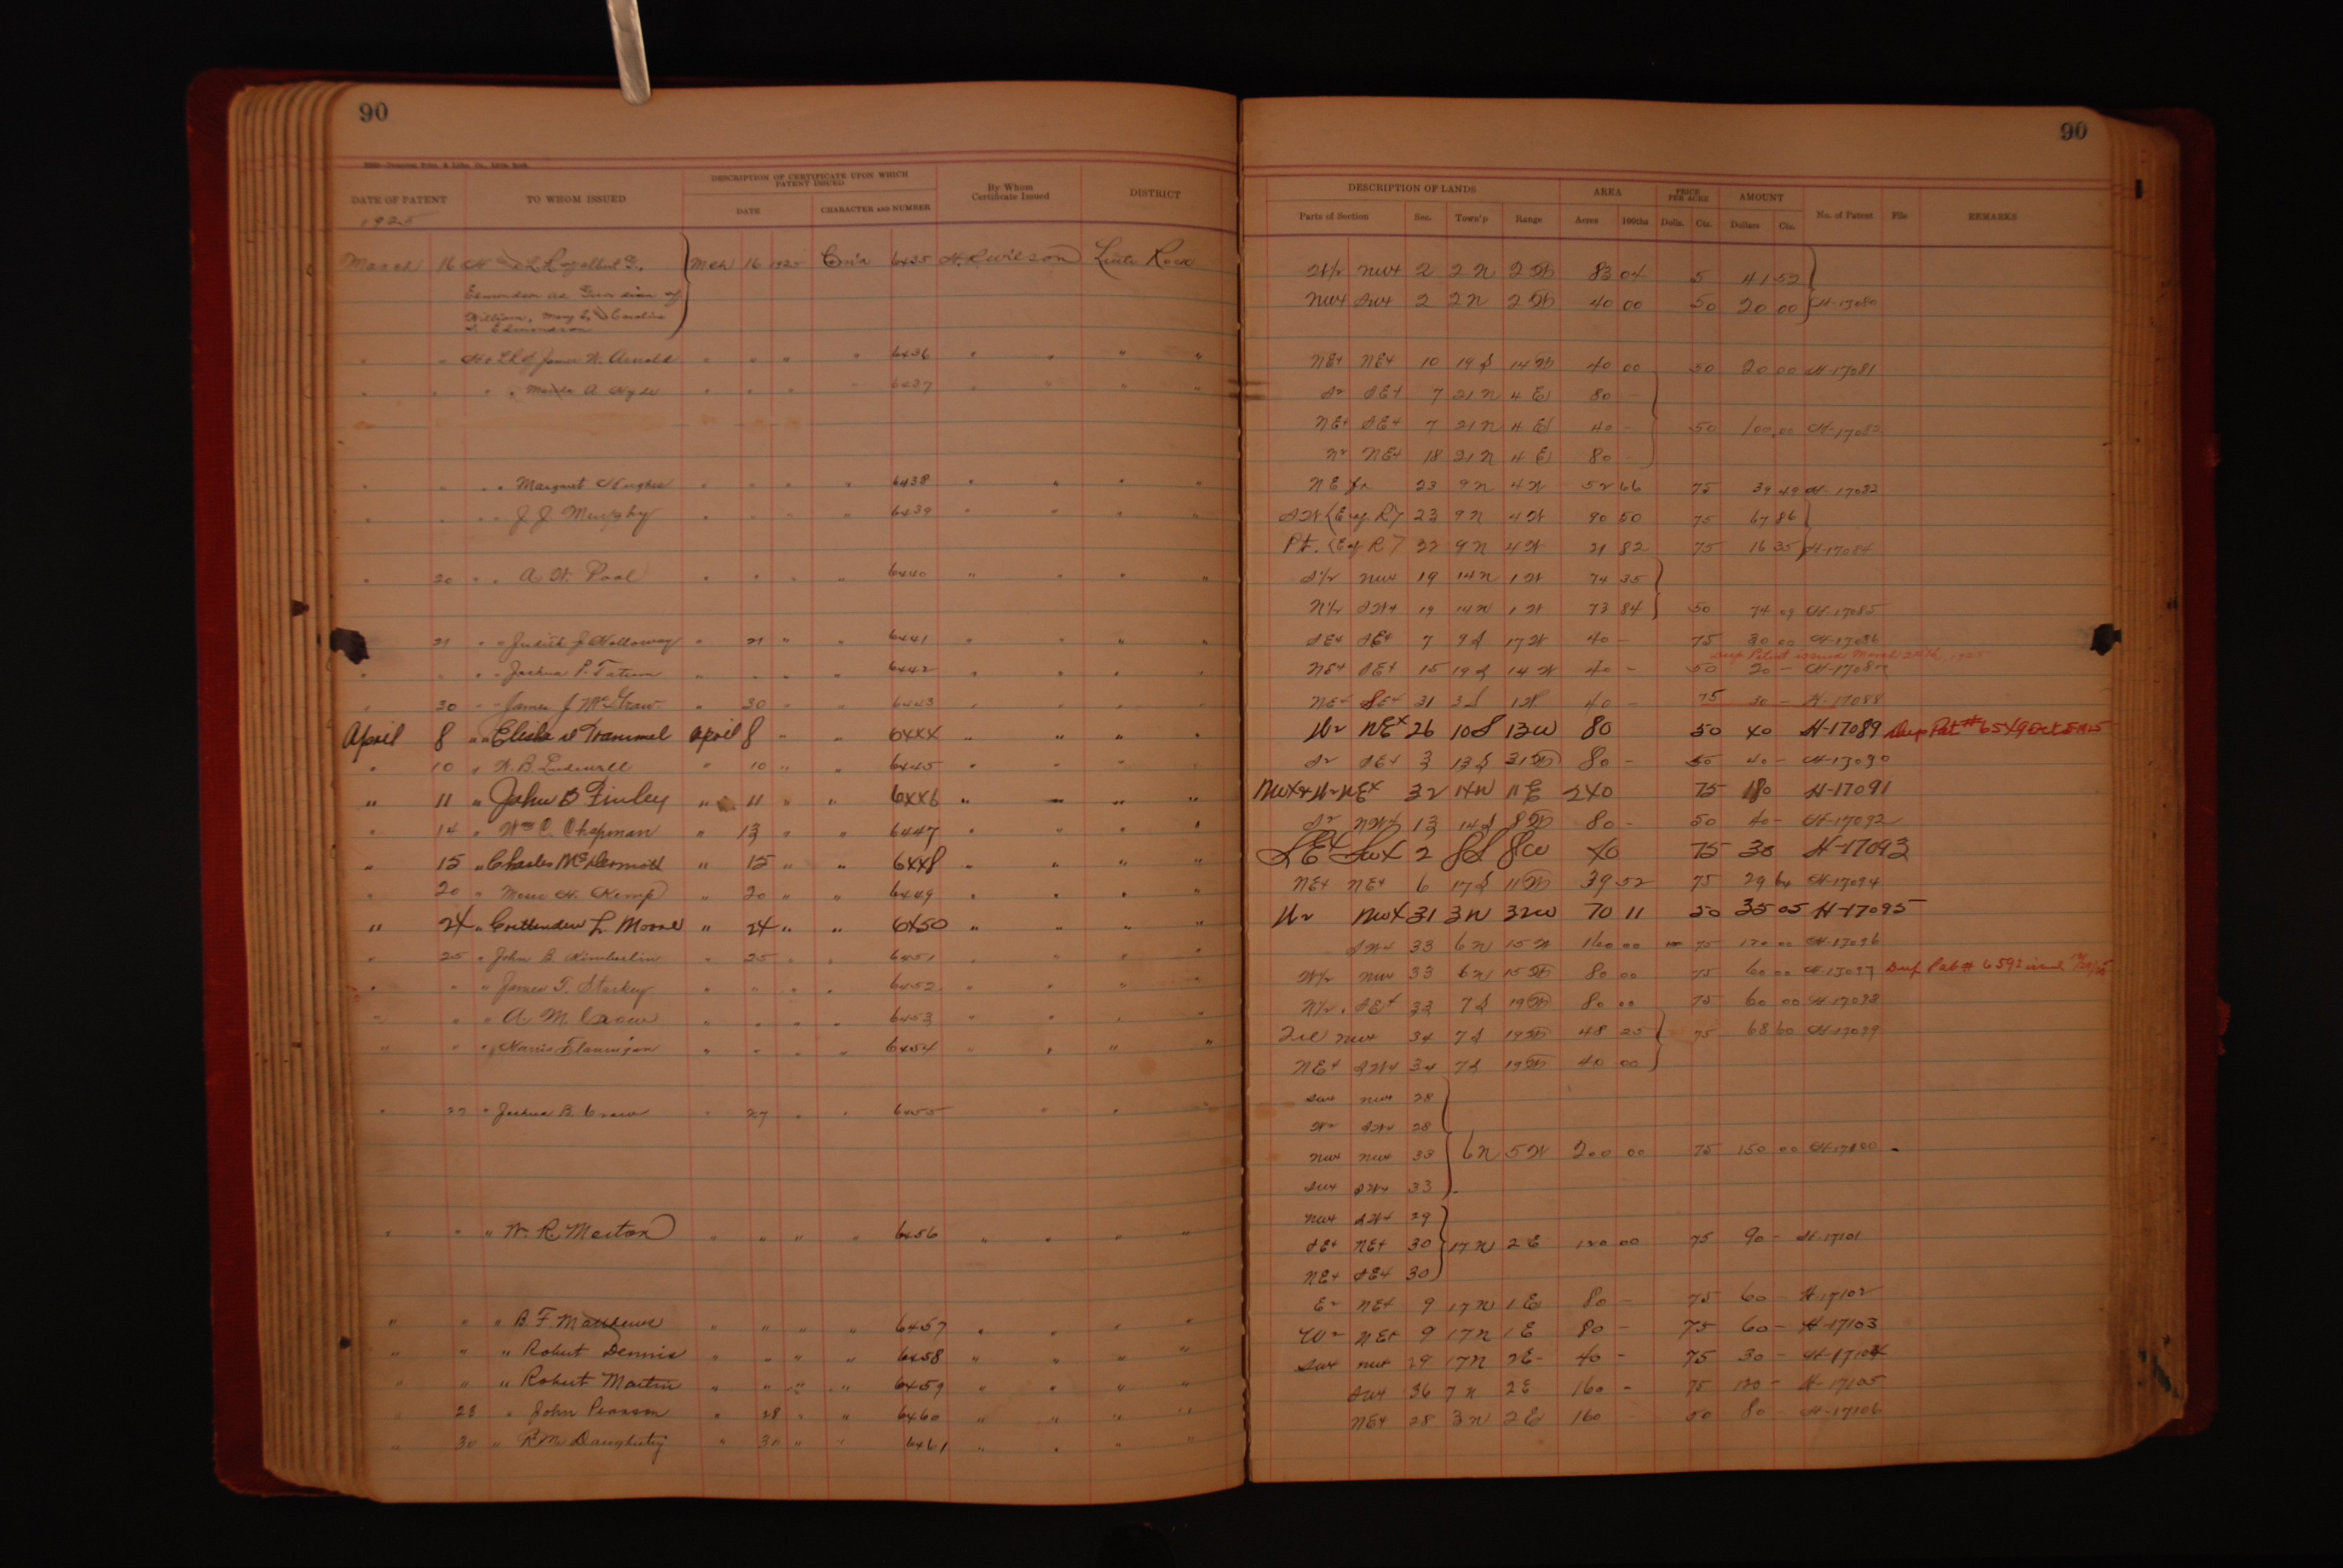 90
DATE OF PATENT
1925
TO WHOM ISSUED
DESCRIPTION OF CERTIFICATE UPON WHICH PATENT ISSUED
DATE
CHARACTER AND NUMBER
By Whom Certificate Issued
DISTRICT
March 16 H L R of Albert G. Mch 16 1925 6435 H. R. Wilson Little Rock
Edmondson as Guardian of
William, Mary E, Caroline
Edmondson
" " H & L R of James W. Arnold " " " " 6436 " " " "
" " " " A Hyde " " " " 6437 " " " "
" " " " Margaret Hughes " " " " 6438 " " " "
" " " " J J Murphy " " " " 6439 " " " "
" 20 " " A. W. Pool " " " " 6440 " " " "
" 21 " " Judith J Holloway " 21 " " 6441 " " " "
" " " " Joshua P. Tatum " " " " 6442 " " " "
" 30 " " James J McGraw " 30 " " 6443 " " " "
April 8 " " Elisha Trammel April 8 " " 6444 " " " "
" 10 " " 10 " " 6445 " " " "
" 11 " John B Finley " 11 " " 6446 " " " "
" 14 " Wm C. Chapman " 13 " " 6447 " " " "
" 15 " Charles McDermott " 15 " " 6448 " " " "
" 20 " Moses H. Kemp " 20 " " 6449 " " " "
" 24 " Crittenden L. Moore " 24 " " 6450 " " " "
" 25 " John B Kimberlin " 25 " " 6451 " " " "
" " " James T. Starkey " " " " 6452 " " " "
" " " A. M. Crow " " " " 6453 " " " "
" " " Harris Flannigan " " " " 6454 " " " "
" 27 " Joshua B. Crow " 27 " " 6455 " " "
" " " W. R. Marton " " " " 6456 " " " "
" " " B. F. Matthews " " " " 6457 " " " "
" " " Robert Dennis " " " " 6458 " " " "
" " " Robert Martin " " " " 6459 " " " "
" 28 " John Pearson " 28 " " 6460 " " " "
" 30 " R M Daugherty " 30 " " 6461 " " " "
90
DESCRIPTION OF LANDS
AREA
PRICE PER ACRE
AMOUNT
No. of Patent
File
REMARKS
Parts of Section
Sec.
Town'p
Range
Acres
100ths
Dolls.
Cts.
Dollars
Cts.
W½ NW4 2 2 N 2 W 83 04 5 41 52
NW4 SW4 2 2 N 2 W 40 00 50 20 00 H-17080
NE4 NE4 10 19 S 14 W 40 00 50 20 00 H-17081
S2 SE4 7 21 N 4 E 80 -
NE4 SE4 7 21 N 4 E 40 - 50 100.00 H-17082
N2 NE4 18 21 N 4 E 80 -
NE fr 23 9 N 4 W 52 66 75 39 49 H-17083
SW (E of R) 23 9 N 4 W 90 50 75 67 86
Pt. (E of R) 22 9 N 4 W 21 82 75 16 35 H-17084
S½ NW4 19 14 N 1 W 74 35
N½ SW4 19 14 N 1 W 73 84 50 74 09 H-17085
SE4 SE4 7 9 S 17 W 40 - 75 30 00 H-17086
Dup Patent issued March 24th, 1925
NE4 SE4 15 19 S 14 W 40 - 50 20 - H-17087
NE4 SE4 31 3 S 1 W 40 - 75 30 - H-17088
W2 NE4 26 10 S 13 W 80 50 40 H-17089 Dup Pat # 6549 Oct 5 1925
S2 SE4 3 13 S 31 W 80 - 50 40 - H-17090
NW4 & W2 NE4 32 14 N 11 E 240 75 180 H-17091
S2 NW4 13 14 S 8 W 80 - 50 40 - H-17092
SE4 SW4 2 8 S 8 W 40 75 30 H-17093
NE4 NE4 6 17 S 11 W 39 52 75 29 64 H-17094
W2 NW4 31 3 N 32 W 70 11 50 35 05 H-17095
SW4 33 6 N 15 W 160 00 75 120 00 H-17096
W½ NW 33 6 N 15 W 80 00 75 60 00 H-17097 Dup Pat # 6592 issued
N½ SE4 33 7 S 19 W 80 00 75 60 00 H-17098
NW4 34 7 S 19 W 48 25 75 68 60 H-17099
NE4 SW4 34 7 S 19 W 40 00
SW4 NW4 28
W2 SW4 28
NW4 NW4 33 6 N 5 W 200 00 75 150 00 H-17100
SW4 SW4 33
NW4 SW4 29
SE4 NE4 30 17 N 2 E 120 00 75 90 - H-17101
NE4 SE4 30
E2 NE4 9 17 N 1 E 80 - 75 60 - H-17102
W2 NE4 9 17 N 1 E 80 - 75 60 - H-17103
SW4 NW4 29 17 N 2 E 40 - 75 30 - H-17104
SW4 36 7 N 2 E 160 - 75 120 - H-17105
NE4 28 3 N 2 E 160 50 80 - H-17106